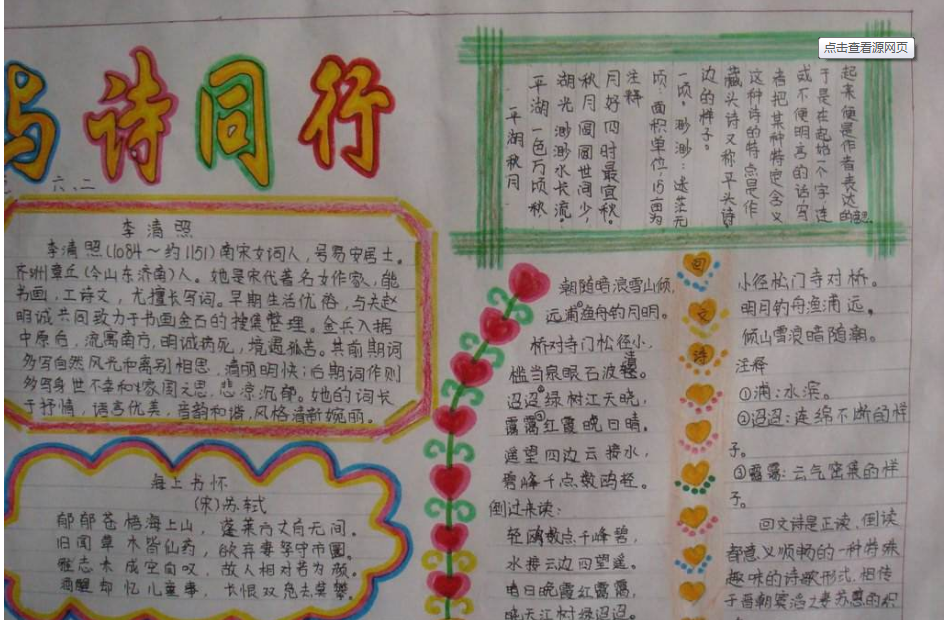 点击查看源网页
与诗同行
六、二
平湖秋月
平湖一色万顷秋
湖光渺渺水长流。
秋月圆圆世间少，
月好四时最宜秋。
注释
顷：面积单位，15亩为
一顷。渺渺：迷茫无
边的样子。
藏头诗又称平头诗
这种诗的特点是作
者把某种特定含义
或不便明言的话写
于是在起始一个字连
起来便是作者表达的
李清照
李清照(1084～约1151)南宋女词人，号易安居士。
齐州章丘(今山东济南)人。她是宋代著名女作家，能
书画，工诗文，尤擅长写词。早期生活优裕，与夫赵
明诚共同致力于书画金石的搜集整理。金兵入据
中原后，流离南方，明诚病死，境遇孤苦。其前期词
多写自然风光和离别相思，清丽明快；后期词作则
多写身世不幸和家国之思，悲凉沉郁。她的词长
于抒情，语言优美，音韵和谐，风格清新婉丽。
海上书怀
(宋)苏轼
郁郁苍梧海上山，蓬莱方丈有无间。
旧闻草木皆仙药，欲弃妻孥守市圜。
雅志未成空自叹，故人相对若为颜。
酒醒却忆儿童事，长恨双凫去莫攀。
回
文
诗
潮随暗浪雪山倾，
远浦渔舟钓月明。
桥对寺门松径小，
槛当泉眼石波清。
迢迢绿树江天晓，
霭霭红霞晚日晴。
遥望四边云接水，
碧峰千点数鸥轻。
倒过来读：
轻鸥数点千峰碧，
水接云边四望遥。
晴日晚霞红霭霭，
晓天江树绿迢迢。
小径松门寺对桥。
明月钓舟渔浦远，
倾山雪浪暗随潮。
注释
①浦：水滨。
②迢迢：连绵不断的样
子。
③霭霭：云气密集的样
子。
回文诗是正读、倒读
都意义顺畅的一种特殊
趣味的诗歌形式。相传
于晋朝窦滔之妻苏蕙的织